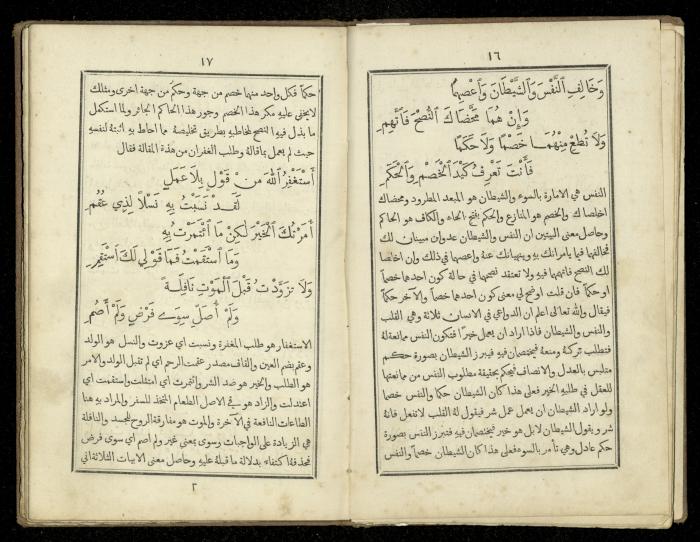 ١٦
وَخَالِفِ النَّفْسَ وَالشَّيْطَانَ وَاعْصِهِمَا
وَإِنْ هُمَا مَحَّضَاكَ النُّصْحَ فَاتَّهِمِ
وَلَا تُطِعْ مِنْهُمَا خَصْمًا وَلَا حَكَمًا
فَأَنْتَ تَعْرِفُ كَيْدَ الْخَصْمِ وَالْحَكَمِ
النفس هي الامارة بالسوء والشيطان هو المبعد المطرود ومحضاك
اخلصا لك والخصم هو المنازع والحكم بفتح الحاء والكاف هو الحاكم
وحاصل معنى البيتين ان النفس والشيطان عدوان مبينان لك
فخالفهما فيما يامرانك به وينهيانك عنه واعصهما في ذلك وان اخلصا
لك النصح فاتهمهما فيه ولا تعتقد نصحهما في حالة كون احدهما خصما
او حكما فان قلت اوضح لي معنى كون احدهما خصما والآخر حكما
فيقال والله تعالى اعلم ان الدواعي في الانسان ثلاثة وهي القلب
والنفس والشيطان فاذا اراد ان يعمل خيرا فتكون النفس ممانعة له
فتطلب تركه ومنعه فيختصمان فيه فيبرز الشيطان بصورة حكم
متلبس بالعدل والانصاف فيحكم بحقيقة مطلوب النفس من ممانعتها
للعقل في طلبه الخير فعلى هذا كان الشيطان حكما والنفس خصما
ولو اراد الشيطان ان يعمل عمل شر فيقول له القلب لا تفعل فانه
شر ويقول الشيطان لا بل هو خير فيختصمان فيه فتبرز النفس بصورة
حكم عادل وهي تأمر بالسوء فعلى هذا كان الشيطان خصما والنفس
١٧
حكما فكل واحد منهما خصم من جهة وحكم من جهة اخرى ومثلك
لا يخفى عليه مكر هذا الخصم وجور هذا الحاكم الجائر ولما استكمل
ما بذل فيه النصح لمخاطبه بطريق تخليصه مما احاط به اثبته لنفسه
حيث لم يعمل بما قاله وطلب الغفران من هذه المقالة فقال
أَسْتَغْفِرُ اللهَ مِنْ قَوْلٍ بِلَا عَمَلٍ
لَقَدْ نَسَبْتُ بِهِ نَسْلًا لِذِي عُقُمِ
أَمَرْتُكَ الْخَيْرَ لَكِنْ مَا ائْتَمَرْتُ بِهِ
وَمَا اسْتَقَمْتُ فَمَا قَوْلِي لَكَ اسْتَقِمِ
وَلَا تَزَوَّدْتُ قَبْلَ الْمَوْتِ نَافِلَةً
وَلَمْ أُصَلِّ سِوَى فَرْضٍ وَلَمْ أَصُمِ
الاستغفار هو طلب المغفرة ونسبت اي عزوت والنسل هو الولد
وعقم بضم العين والقاف مصدر عقمت الرحم اي لم تقبل الولد والامر
هو الطلب والخير هو ضد الشر وائتمرت اي امتثلت واستقمت اي
اعتدلت والزاد هو في الاصل الطعام المتخذ للسفر والمراد به هنا
الطاعات النافعة في الآخرة والموت هو مفارقة الروح للجسد والنافلة
هي الزيادة على الواجبات وسوى بمعنى غير ولم اصم اي سوى فرض
فحذفه اكتفاء بدلالة ما قبله عليه وحاصل معنى الابيات الثلاثة اني
٢